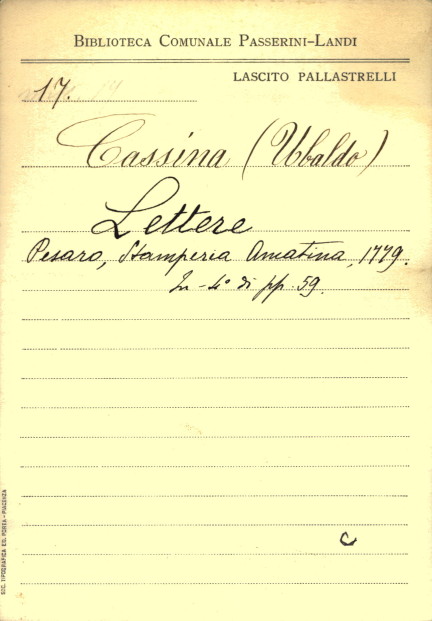 BIBLIOTECA COMUNALE PASSERINI-LANDI
LASCITO PALLASTRELLI
17.
Cassina (Ubaldo)
Lettere
Pesaro, Stamperia Amatina, 1779.
In-4° di pp. 59.
C
SOC. TIPOGRAFICA ED. PORTA - PIACENZA